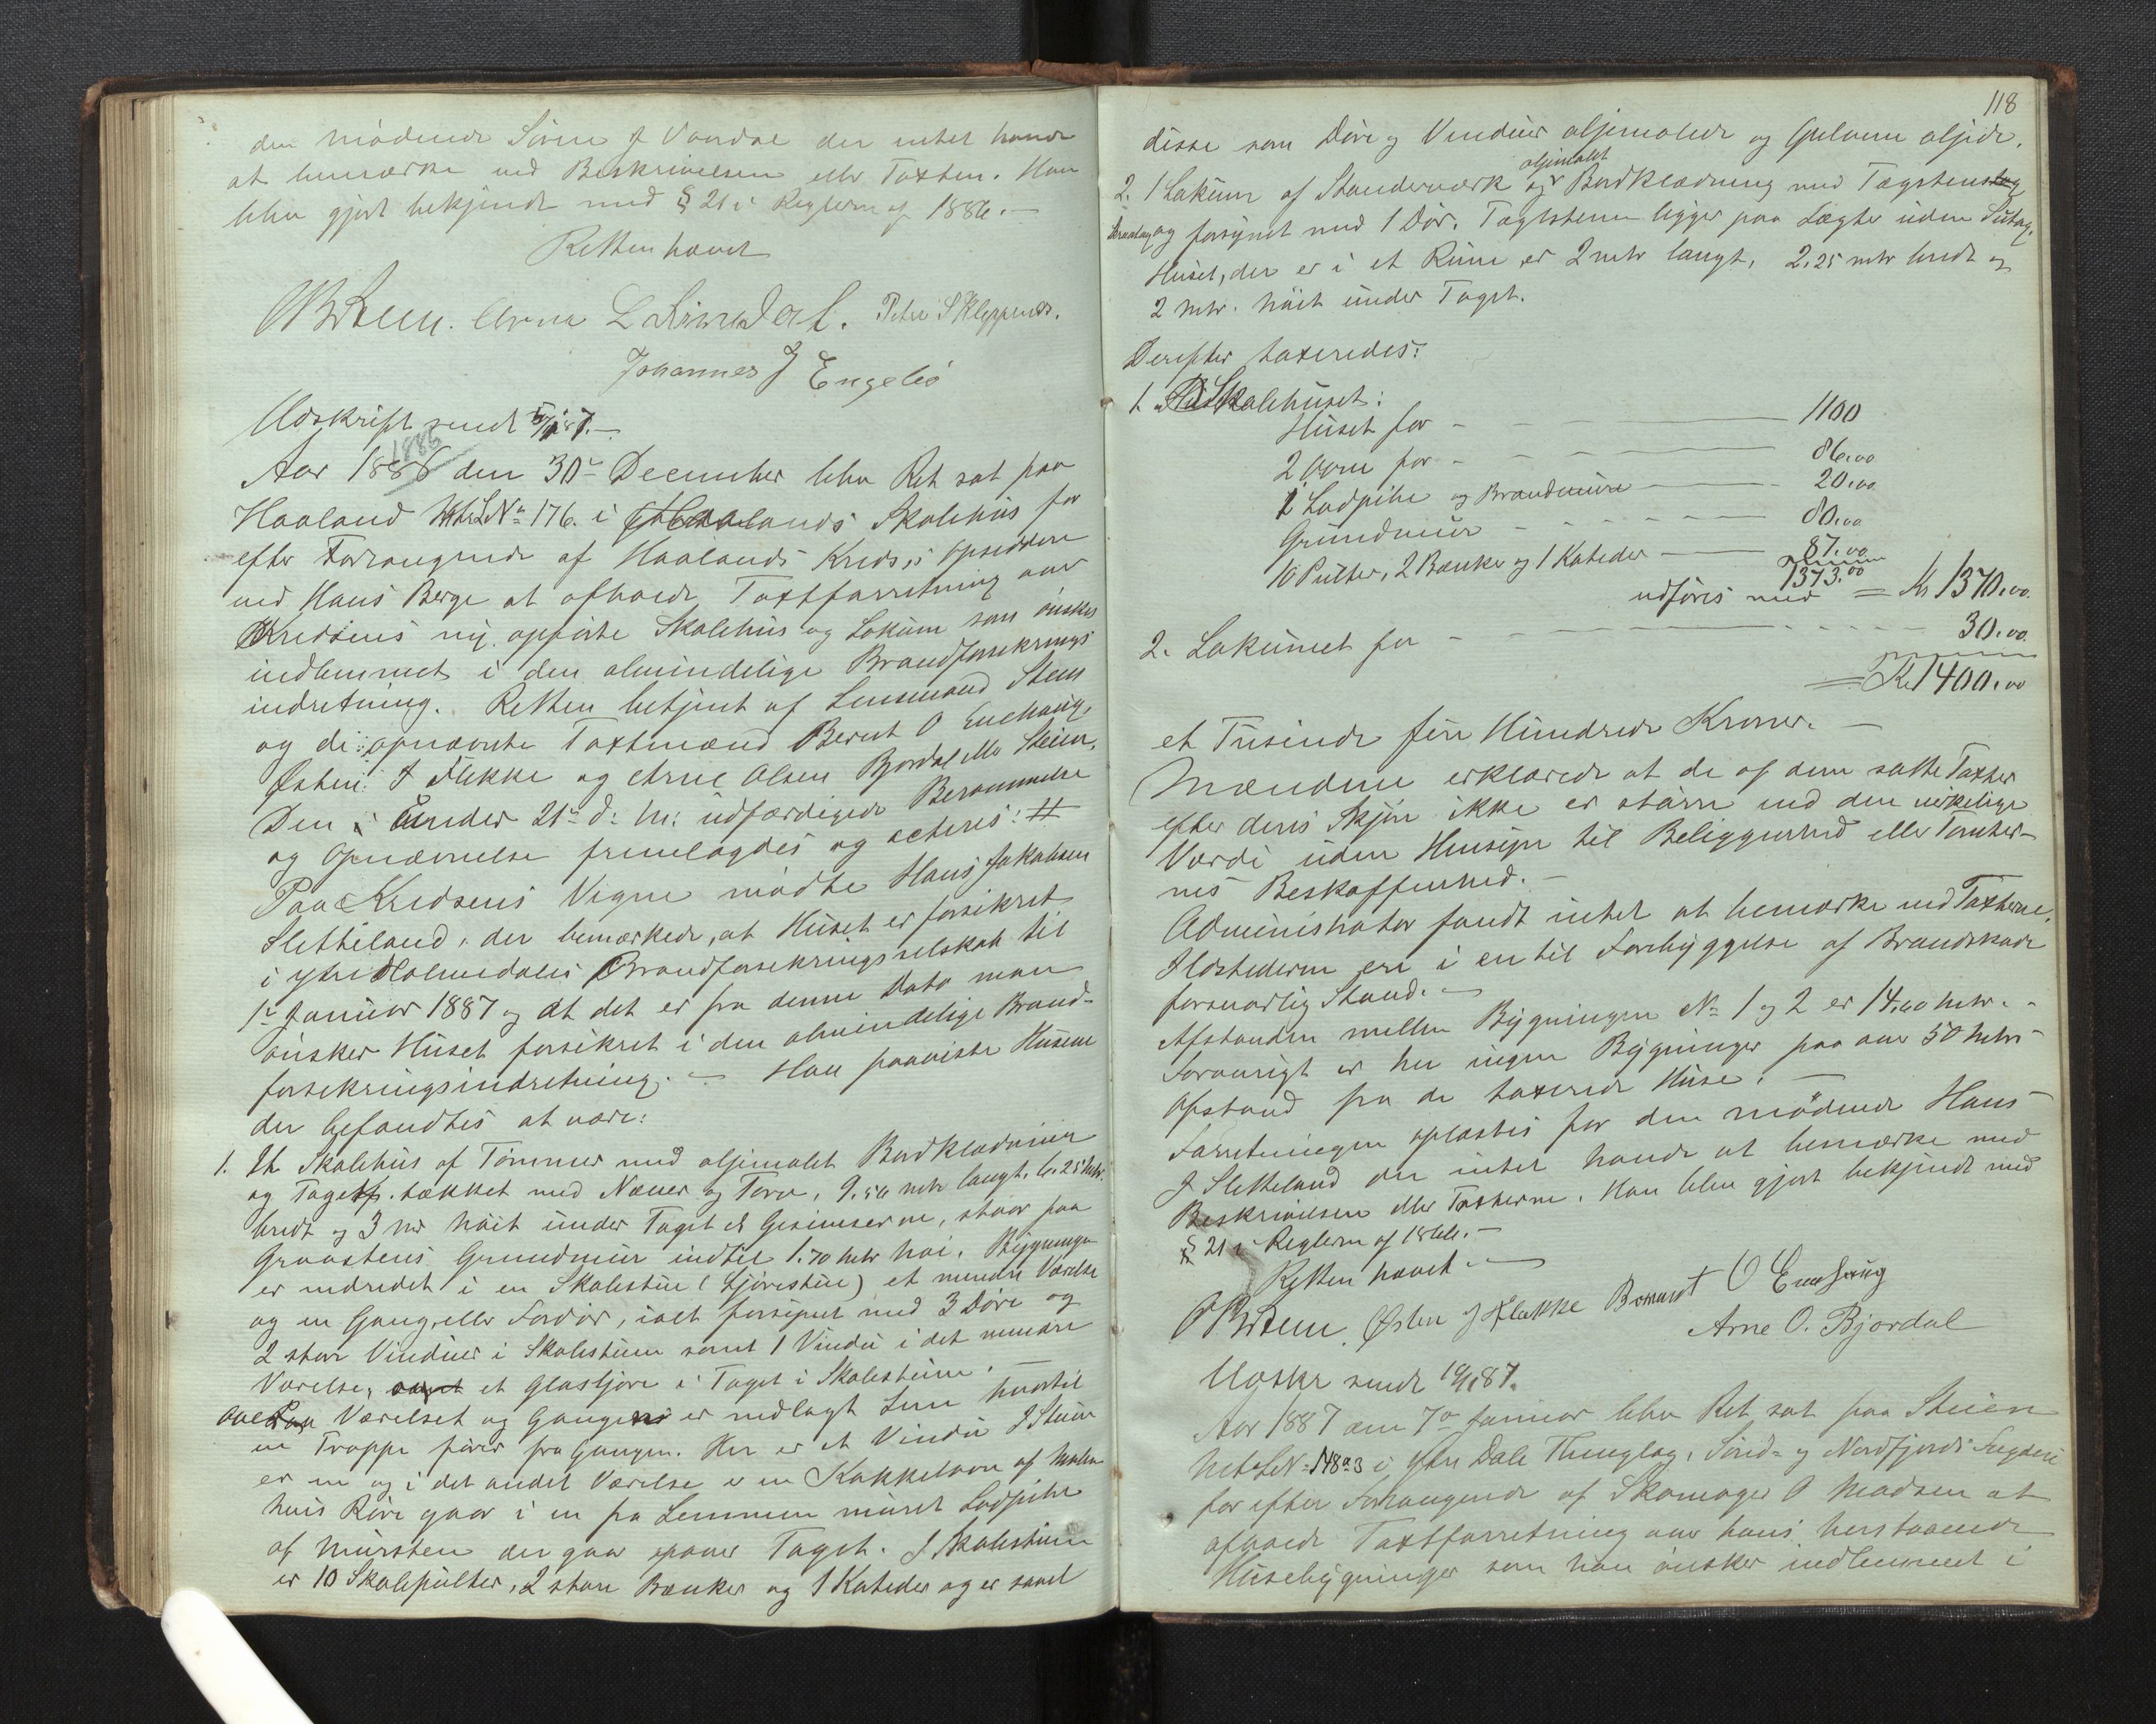 den mødende Søren J Vaardal der intet havde
at bemærke ved Beskrivelsen eller Taxten. Han
blev gjort bekjendt med § 21 i Reglerne af 1886.—
Retten hævet
Arne L Peder S Kleppenes.
Johannes J Engebø
Udskrift sendt 5/1 87.—
1886
Aar 1886 den 30te December blev Ret sat paa
Haaland MtrLNo 176. i Haalands Skolehus for
efter Forlangende af Haalands Kreds's Opsidder
ved Hans Berge at afholde Taxtforretning over
Kredsens ny opførte Skolehus og Lokum som ønskes
indlemmet i den almindelige Brandforsikrings
indretning. Retten betjent af Lensmand Steen
og de opnævnte Taxtmænd Berent O Enehaug,
Østen J Flekke og Arne Olsen Bjordal eller Steien.
Den under 21de d: M: udfærdigede Berammelse
og Opnævnelse fremlagdes og acteres: #
Paa Kredsens Vegne mødte Hans Jakobsen
Sletteland, der bemærkede, at Huset er forsikret
i ytre Holmedals Brandforsikringsselskab til
1te Januar 1887 og at det er fra denne Dato man
ønsker Huset forsikret i den almindelige Brand-
forsikringsindretning.— Han paaviste Husene
der befandtes at være:
1. Et Skolehus af Tømmer med oljemalet Bordklædning
og Taget tækket med Næver og Torv, 9.50 mtr langt, 6.25 mtr.
bredt og 3 mtr høit under Taget et Gesimserne, staar paa
Graastens Grundmur indtil 1.70 mtr høi. Bygningen
er indredet i en Skolestue (Hjørestue) et mindre Værelse
og en Gang eller Fordør, ialt forsynet med 3 Døre og
2 store Vinduer i Skolestuen samt 1 Vindu i det mindre
Værelse, samt et Glastjore i Taget i Skolestuen.
Over Værelset og Gangen er indlagt Lem hvortil
en Trappe fører fra Gangen. Her er et Vindu I Stuen
er en og i det andet Værelse er en Kakkelovn af Malm
hvis Røre gaar i en fra Lemmen muret Lodpibe
af Mursten der gaar over Taget. I Skolestuen
er 10 Skolepulter, 2 store Bænker og 1 Kateder og er samt
118
disse som Døre og Vinduer oljemalede og Gulvene oljede.
oljemalet
2. 1 Lokum af Standerværk og Bordklædning med Tagstens
og forsynet med 1 Dør. Tagstenen ligger paa Lægter uden Sutag.
Huset, der er i et Rum er 2 mtr langt, 2.25 mtr bredt og
2 mtr. høit under Taget.
Derefter taxeredes:
1. Skolehuset:
Huset for — 1100
2 Ovne for — 86.00
1 Lodpibe og Brandmure — 20.00
Grundmur — 80.00
10 Pulter, 2 Bænker og 1 Kateder — 87.00
1373.00
udføres med = Kr 1370.00
2. Lokumet for — 30.00
= Kr 1400.00
et Tusinde fire Hundrede Kroner.—
Mændene erklærede at de af dem satte Taxter
efter deres Skjøn ikke er større end den virkelige
Værdi uden Hensyn til Beliggenhed eller Tomter-
nes Beskaffenhed.—
Administrator fandt intet at bemærke ved Taxterne.
Ildstederne ere i en til Forebyggelse af Brandskade
forsvarlig Stand.—
Afstanden mellem Bygningen No 1 og 2 er 14.60 mtr.—
Forøvrigt er her ingen Bygninger paa over 50 Metrs
Afstand fra de taxerede Huse.—
Forretningen oplæstes for den mødende Hans
J Sletteland der intet havde at bemærke ved
Beskrivelsen eller Taxterne. Han blev gjort bekjendt med
§ 21 i Reglerne af 1886.—
Retten hævet.—
Østen J Flekke Berendt O Enehaug
Arne O. Bjordal
Udskr sendt 10/1 87.
Aar 1887 den 7de Januar blev Ret sat paa Steien
MtrLNo 148a3 i Ytre Dale Thinglag, Sønd- og Nordfjords Fogderi
for efter Forlangende af Skomager O Madsen at
afholde Taxtforretning over hans herstaaende
Husebygninger som han ønsker indlemmet i